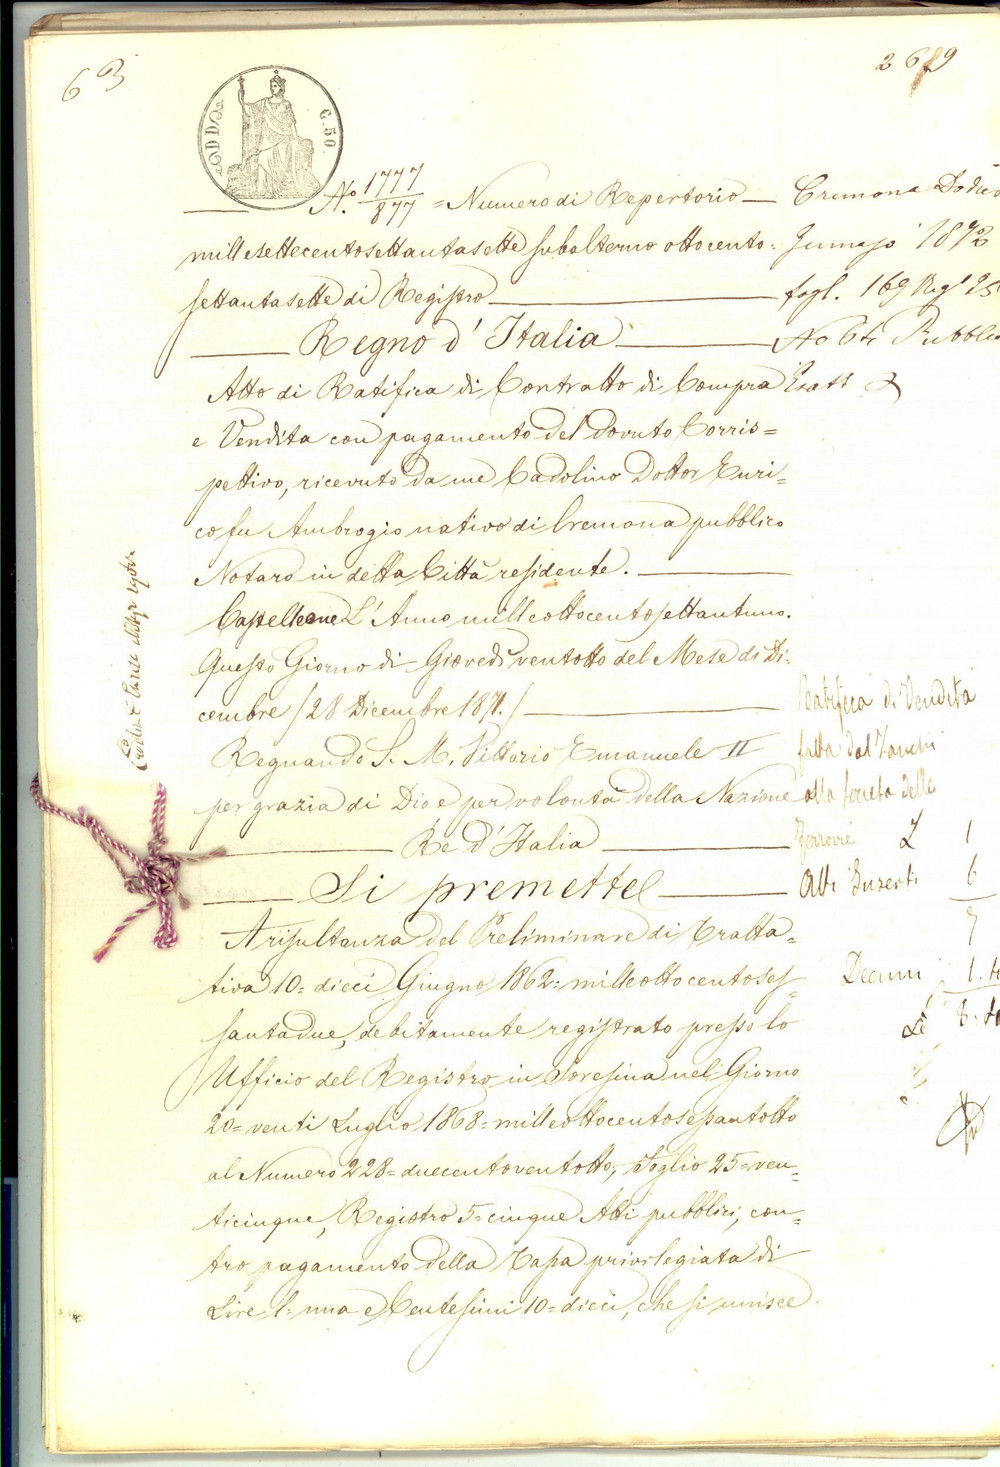 63
2619
C. 50.
N.º 1777/877 = Numero di Repertorio
millesettecentosettantasette subalterno ottocento-
settantasette di Registro
Regno d'Italia
Atto di Ratifica di Contratto di Compra
e Vendita con pagamento del dovuto Corris=
pettivo, ricevuto da me Cadolino Dottor Enri=
co fu Ambrogio nativo di Cremona pubblico
Notaro in detta Città residente.
Castelleone L'Anno milleottocentosettantuno.
Questo Giorno di Giovedì ventotto del Mese di Di-
cembre / 28 Dicembre 1871. /
Regnando S. M. Vittorio Emanuele II
per grazia di Dio e per volontà della Nazione
Re d'Italia
Si premette
A risultanza del Preliminare di Tratta=
tiva 10= dieci Giugno 1862= milleottocentoses=
santadue, debitamente registrato presso lo
Ufficio del Registro in Soresina nel Giorno
20= venti Luglio 1868= milleottocentosessantotto
al Numero 228= duecentoventotto, Foglio 25= ven=
ticinque, Registro 5= cinque Atti pubblici, con=
tro pagamento della Tassa privilegiata di
Lire 1= una e Centesimi 10= dieci, che si unisce
Cremona Dodici
1872
fogl. 169 Reg 25
No 64 Pubblic
Ratifica di Vendita
fatta dal Zanchi
alla Società delle
Ferrovie L 1
Atti Inserti 6
7
Decimi 1.
8.